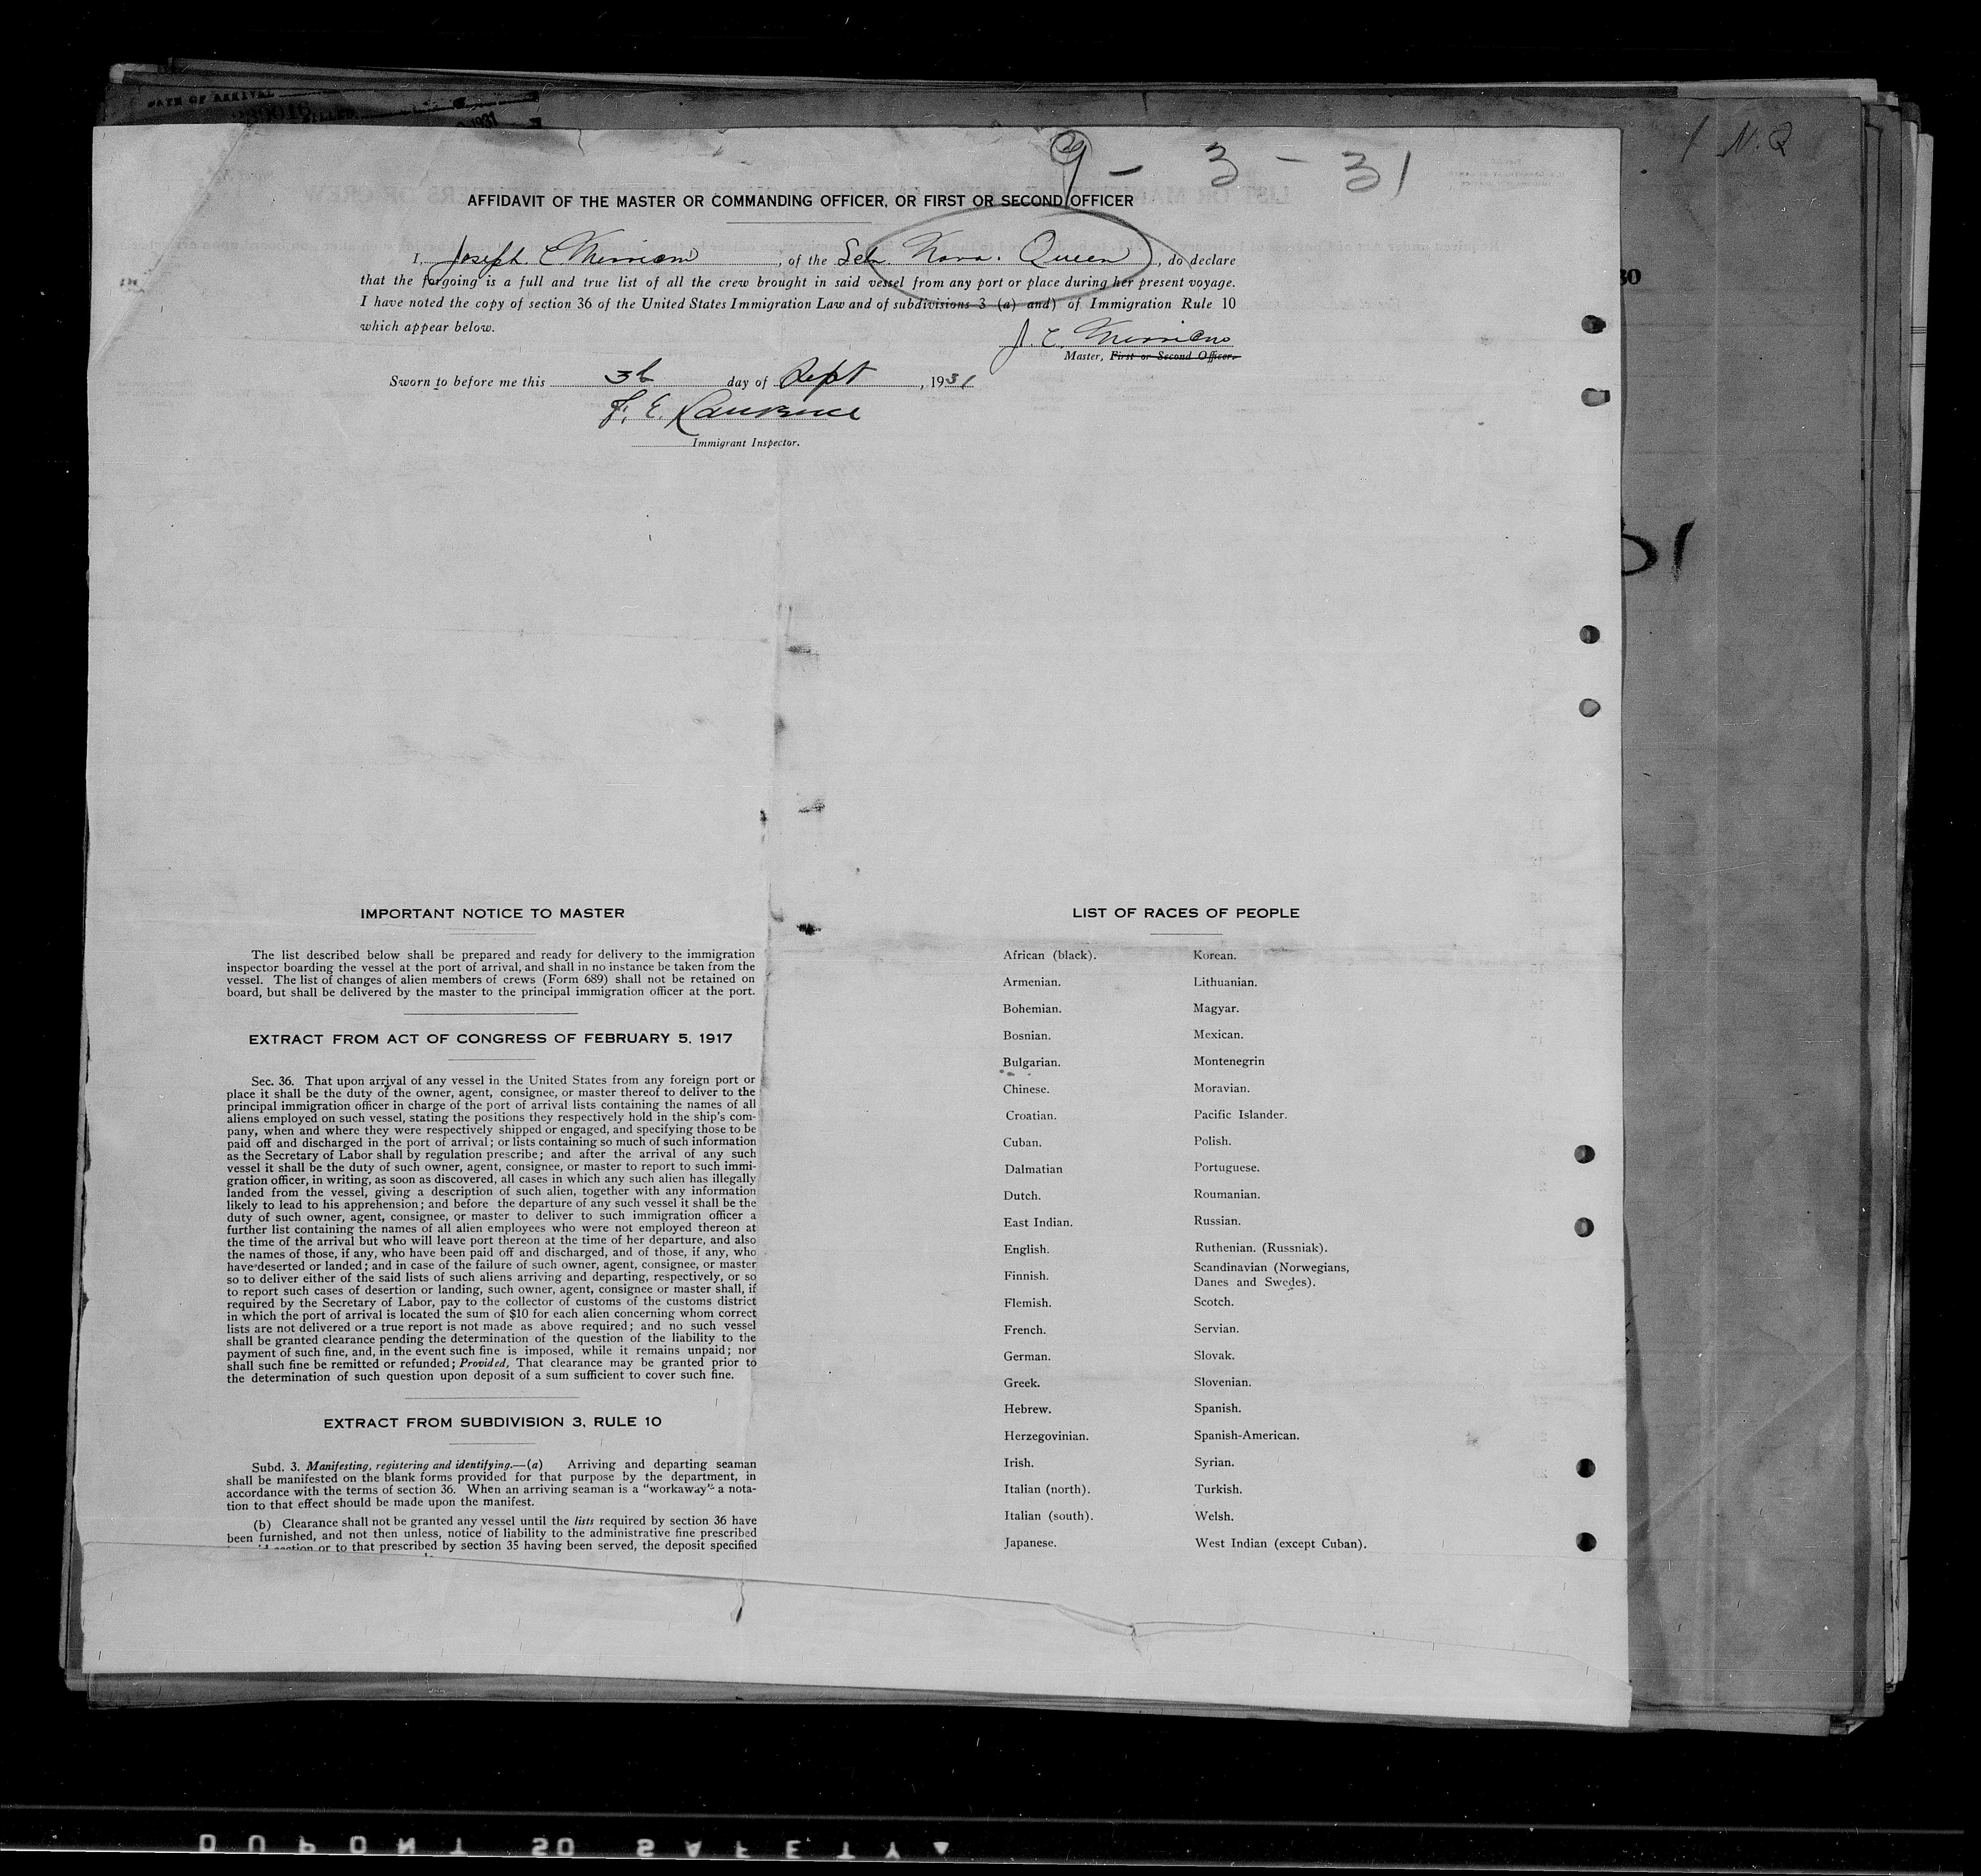 DATE OF ARRIVAL
1931
1 N.Q
9 - 3 - 31
AFFIDAVIT OF THE MASTER OR COMMANDING OFFICER, OR FIRST OR SECOND OFFICER
I, Joseph C Merriam, of the Sch Nova. Queen, do declare
that the forgoing is a full and true list of all the crew brought in said vessel from any port or place during her present voyage.
I have noted the copy of section 36 of the United States Immigration Law and of subdivisions 3 (a) and) of Immigration Rule 10
which appear below.
J. C. Merriam
Master, First or Second Officer.
Sworn to before me this 3d day of Sept, 1931
F. E. Lawrence
Immigrant Inspector.
30
IMPORTANT NOTICE TO MASTER
The list described below shall be prepared and ready for delivery to the immigration
inspector boarding the vessel at the port of arrival, and shall in no instance be taken from the
vessel. The list of changes of alien members of crews (Form 689) shall not be retained on
board, but shall be delivered by the master to the principal immigration officer at the port.
EXTRACT FROM ACT OF CONGRESS OF FEBRUARY 5, 1917
Sec. 36. That upon arrival of any vessel in the United States from any foreign port or
place it shall be the duty of the owner, agent, consignee, or master thereof to deliver to the
principal immigration officer in charge of the port of arrival lists containing the names of all
aliens employed on such vessel, stating the positions they respectively hold in the ship's com-
pany, when and where they were respectively shipped or engaged, and specifying those to be
paid off and discharged in the port of arrival; or lists containing so much of such information
as the Secretary of Labor shall by regulation prescribe; and after the arrival of any such
vessel it shall be the duty of such owner, agent, consignee, or master to report to such immi-
gration officer, in writing, as soon as discovered, all cases in which any such alien has illegally
landed from the vessel, giving a description of such alien, together with any information
likely to lead to his apprehension; and before the departure of any such vessel it shall be the
duty of such owner, agent, consignee, or master to deliver to such immigration officer a
further list containing the names of all alien employees who were not employed thereon at
the time of the arrival but who will leave port thereon at the time of her departure, and also
the names of those, if any, who have been paid off and discharged, and of those, if any, who
have deserted or landed; and in case of the failure of such owner, agent, consignee, or master
so to deliver either of the said lists of such aliens arriving and departing, respectively, or so
to report such cases of desertion or landing, such owner, agent, consignee or master shall, if
required by the Secretary of Labor, pay to the collector of customs of the customs district
in which the port of arrival is located the sum of $10 for each alien concerning whom correct
lists are not delivered or a true report is not made as above required; and no such vessel
shall be granted clearance pending the determination of the question of the liability to the
payment of such fine, and, in the event such fine is imposed, while it remains unpaid; nor
shall such fine be remitted or refunded; Provided, That clearance may be granted prior to
the determination of such question upon deposit of a sum sufficient to cover such fine.
EXTRACT FROM SUBDIVISION 3, RULE 10
Subd. 3. Manifesting, registering and identifying.—(a) Arriving and departing seaman
shall be manifested on the blank forms provided for that purpose by the department, in
accordance with the terms of section 36. When an arriving seaman is a "workaway" a nota-
tion to that effect should be made upon the manifest.
(b) Clearance shall not be granted any vessel until the lists required by section 36 have
been furnished, and not then unless, notice of liability to the administrative fine prescribed
section or to that prescribed by section 35 having been served, the deposit specified
LIST OF RACES OF PEOPLE
African (black).
Armenian.
Bohemian.
Bosnian.
Bulgarian.
Chinese.
Croatian.
Cuban.
Dalmatian
Dutch.
East Indian.
English.
Finnish.
Flemish.
French.
German.
Greek.
Hebrew.
Herzegovinian.
Irish.
Italian (north).
Italian (south).
Japanese.
Korean.
Lithuanian.
Magyar.
Mexican.
Montenegrin
Moravian.
Pacific Islander.
Polish.
Portuguese.
Roumanian.
Russian.
Ruthenian. (Russniak).
Scandinavian (Norwegians,
Danes and Swedes).
Scotch.
Servian.
Slovak.
Slovenian.
Spanish.
Spanish-American.
Syrian.
Turkish.
Welsh.
West Indian (except Cuban).
DUPONT 50 SAFETY